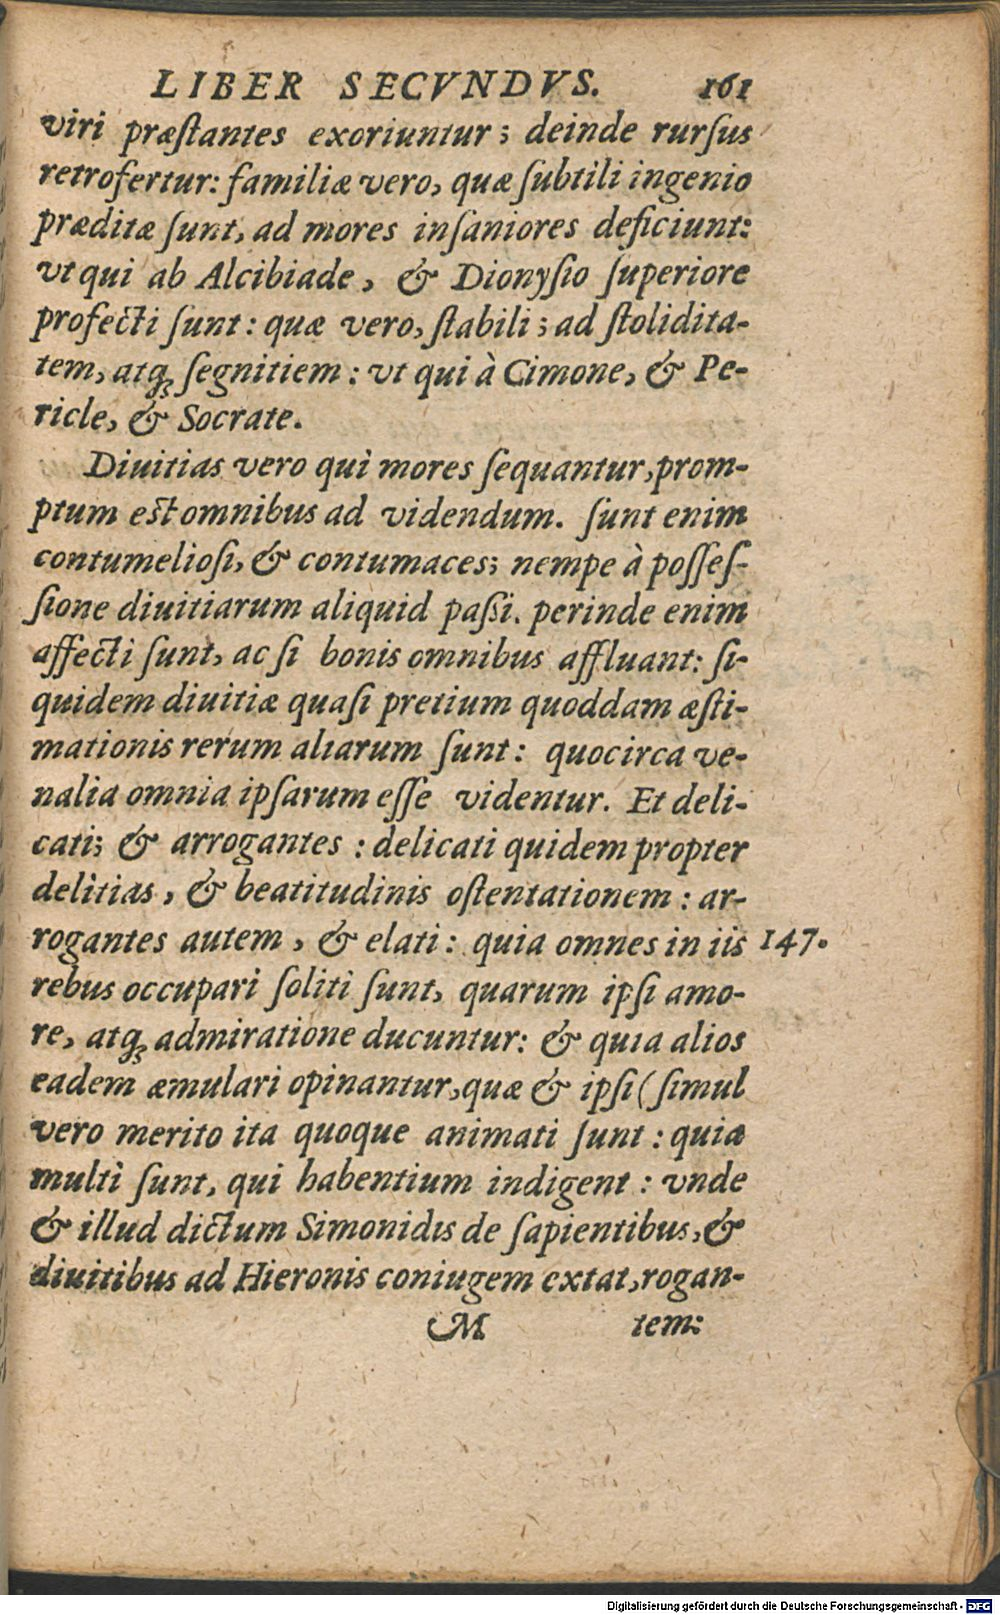 LIBER SECVNDVS. 161
viri præſtantes exoriuntur; deinde rurſus
retrofertur: familiæ vero, quæ ſubtili ingenio
præditæ ſunt, ad mores inſaniores deficiunt:
vt qui ab Alcibiade, & Dionyſio ſuperiore
profecti ſunt: quæ vero, ſtabili; ad ſtolidita-
tem, atq; ſegnitiem: vt qui à Cimone, & Pe-
ricle, & Socrate.
Diuitias vero qui mores ſequantur, prom-
ptum eſt omnibus ad videndum. ſunt enim
contumelioſi, & contumaces; nempe à poſſeſ-
ſione diuitiarum aliquid paßi. perinde enim
affecti ſunt, ac ſi bonis omnibus affluant: ſi-
quidem diuitiæ quaſi pretium quoddam æſti-
mationis rerum aliarum ſunt: quocirca ve-
nalia omnia ipſarum eſſe videntur. Et deli-
cati; & arrogantes: delicati quidem propter
delitias, & beatitudinis oſtentationem: ar-
rogantes autem, & elati: quia omnes in iis 147.
rebus occupari ſoliti ſunt, quarum ipſi amo-
re, atq; admiratione ducuntur: & quia alios
eadem æmulari opinantur, quæ & ipſi (ſimul
vero merito ita quoque animati ſunt: quia
multi ſunt, qui habentium indigent: vnde
& illud dictum Simonidis de ſapientibus, &
diuitibus ad Hieronis coniugem extat, rogan-
M tem:
Digitalisierung gefördert durch die Deutsche Forschungsgemeinschaft - DFG